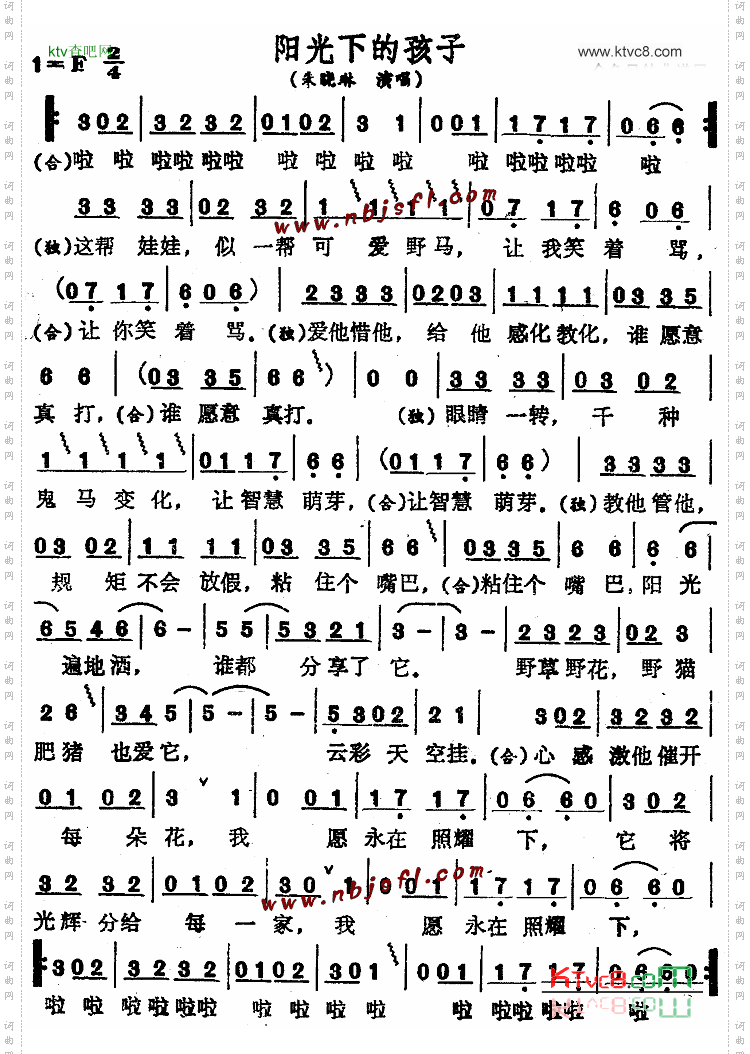 ktv查吧网
阳光下的孩子
www.ktvc8.com
1=E 2/4
(朱晓琳 演唱)
302 | 3232 | 0102 | 3 1 | 001 | 1717 | 066
(合)啦 啦 啦啦 啦啦 啦 啦 啦 啦 啦 啦啦 啦啦 啦
33 33 | 02 32 | 1 1 1 1 | 07 17 | 6 06
www.nbjsfl.com
(独)这帮 娃娃, 似 一帮 可 爱 野 马, 让 我笑 着 骂,
(07 17 | 6 06) | 2333 | 0203 | 1111 | 0335
(合)让 你笑 着 骂。(独)爱他惜他, 给 他 感化教化, 谁 愿意
6 6 | (03 35 | 66) | 0 0 | 33 33 | 03 03
真 打,(合)谁 愿意 真打。 (独)眼睛 一转, 千 种
1 1 1 1 | 0117 | 66 | (0117 | 66) | 3333
鬼 马 变 化, 让智慧 萌芽,(合)让智慧 萌芽。(独)教他管他,
03 02 | 11 11 | 03 35 | 66 | 0335 | 6 6 | 6 6
规 矩 不会 放假, 粘 住个 嘴巴,(合)粘住个 嘴 巴, 阳 光
6546 | 6- | 55 | 5321 | 3- | 3- | 2323 | 0023
遍地洒, 谁都 分享了 它。 野草野花, 野猫
26 | 345 | 5- | 5- | 5302 | 21 | 302 | 3232
肥猪 也爱它, 云彩 天 空挂。(合)心 感 激他 催开
01 02 | 3 1 | 0 001 | 17 17 | 06 60 | 3 02
每 朵 花, 我 愿 永在 照耀 下, 它 将
32 32 | 0102 | 30 1 | 0001 | 1717 | 06 60
www.nbjsfl.com
光辉 分给 每 一 家, 我 愿 永在 照耀 下,
302 | 3232 | 0102 | 301 | 001 | 17 17 | 0660
KTvc8.com
啦 啦 啦啦 啦啦 啦 啦 啦 啦 啦 啦啦 啦啦 啦